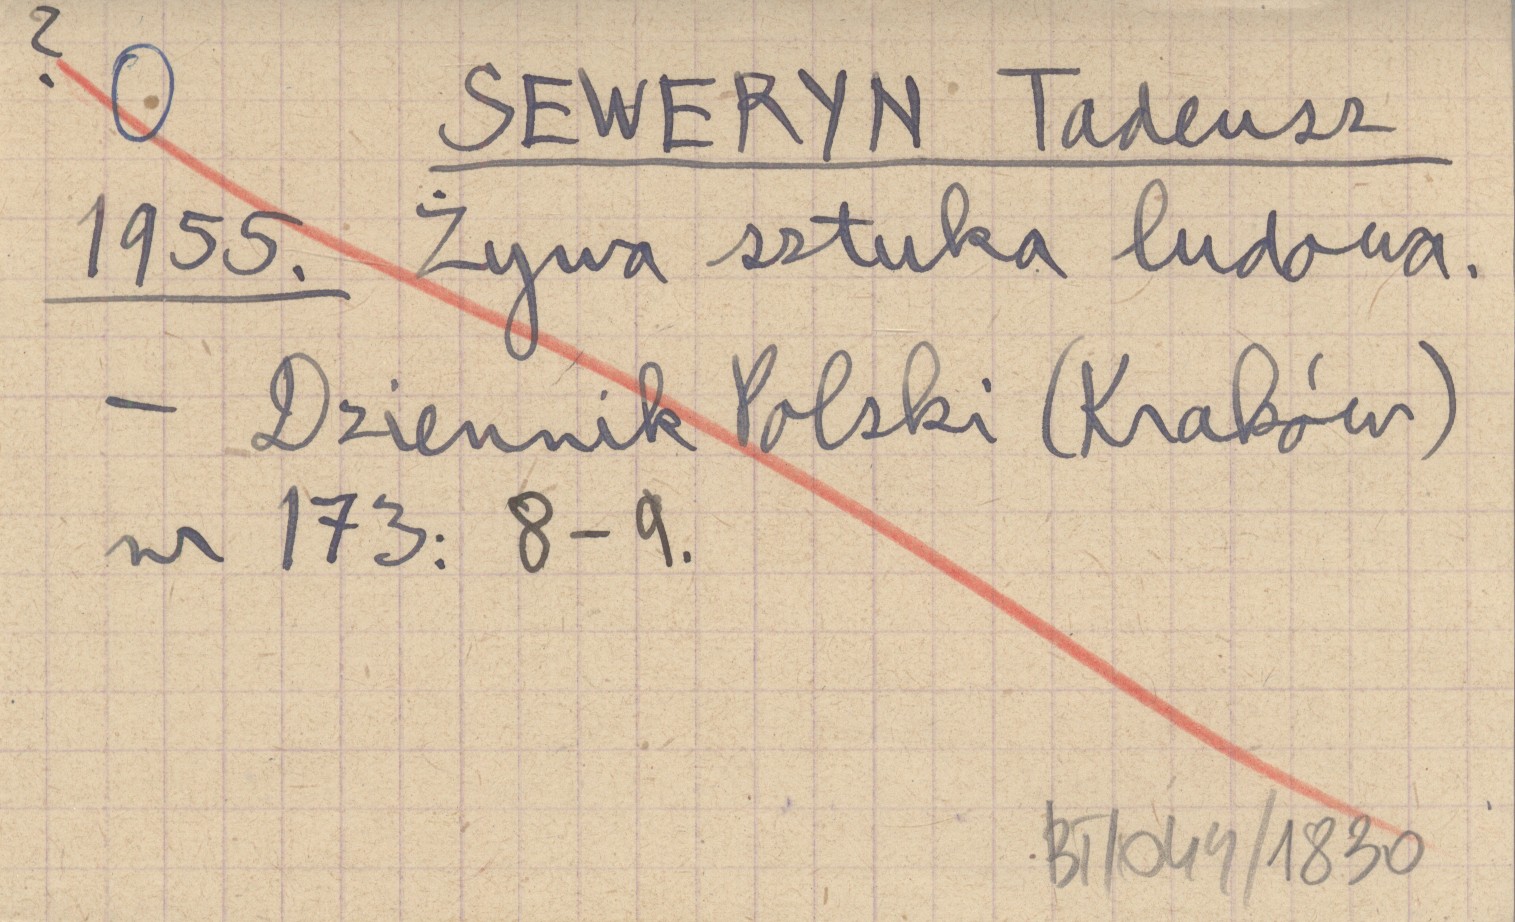 ?
O
SEWERYN Tadeusz
1955. Żywa sztuka ludowa.
- Dziennik Polski (Kraków)
nr 173: 8-9.
BT/044/1830